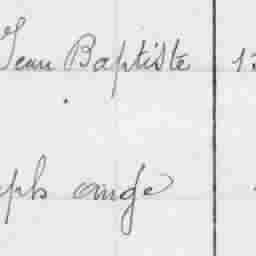 Jean Baptiste 13
ph ange